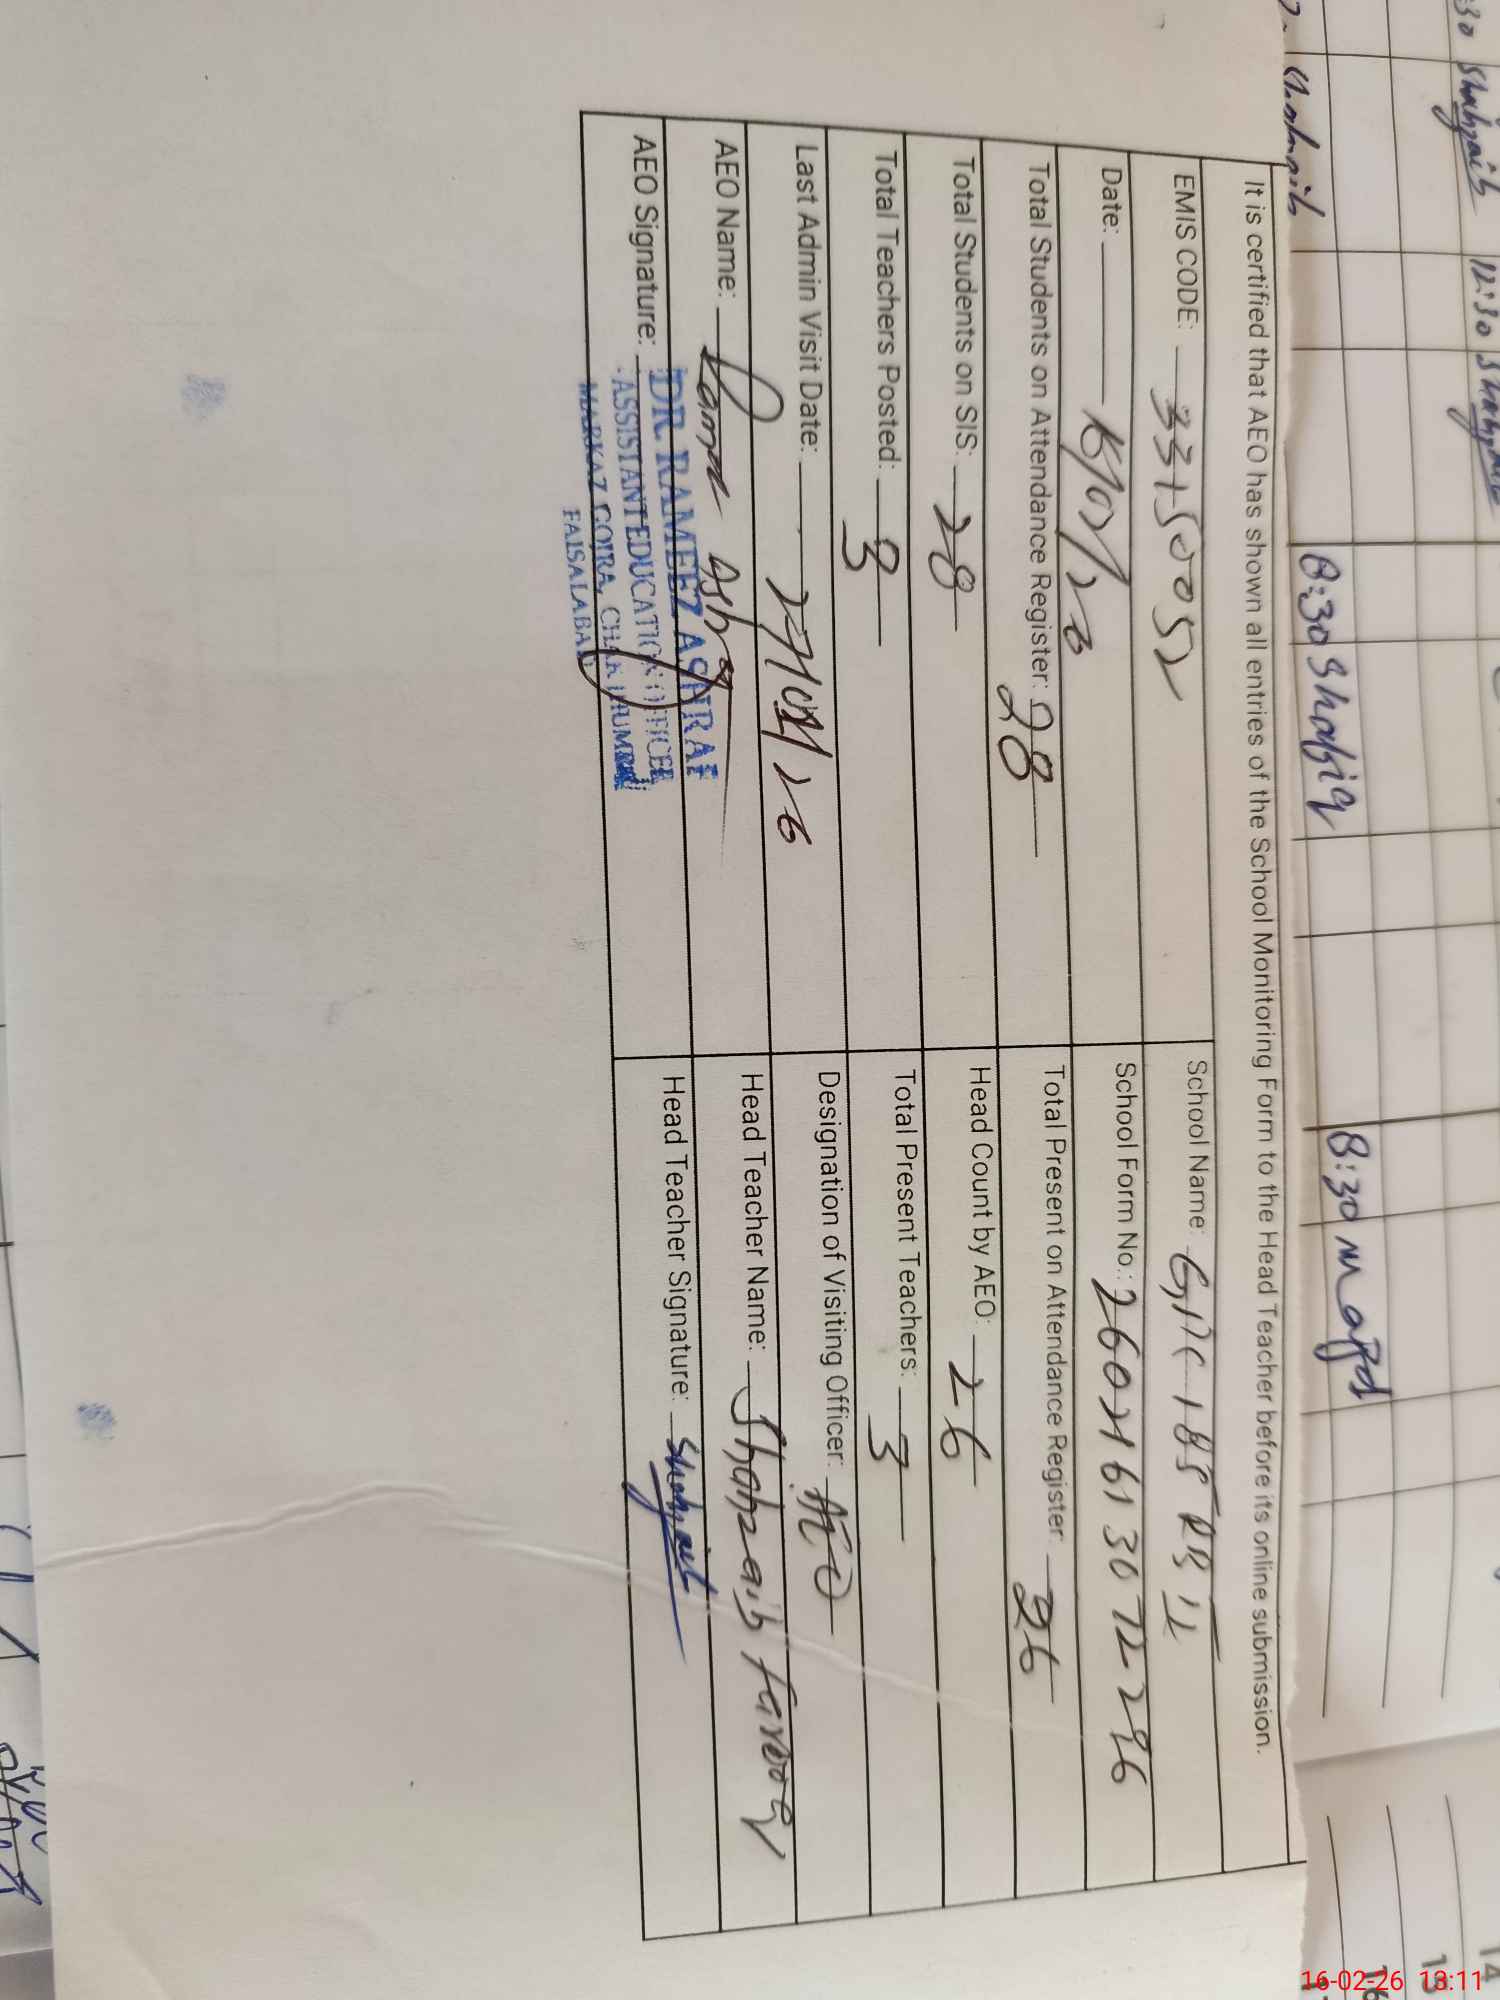 It is certified that AEO has shown all entries of the School Monitoring Form to the Head Teacher before its online submission.
EMIS CODE: 33150052
School Name: 185 RB
Date: 16/02/26
School Form No.: 26021613072296
Total Students on Attendance Register: 28
Total Present on Attendance Register: 26
Total Students on SIS: 28
Head Count by AEO: 26
Total Teachers Posted: 3
Total Present Teachers: 3
Last Admin Visit Date: /26
Designation of Visiting Officer: AEO
AEO Name: Rameez Ashraf
Head Teacher Name: Shahzaib farooq
AEO Signature:
Head Teacher Signature: Shahzaib
DR. RAMEEZ ASHRAF
ASSISTANT EDUCATION OFFICER
MARKAZ GOIRA, CHAK JHUMRA
FAISALABAD
:30 Shahzaib 12:30 Shahzaib
8:30 Shafiq 8:30
14
13
16
16-02-26 13:11